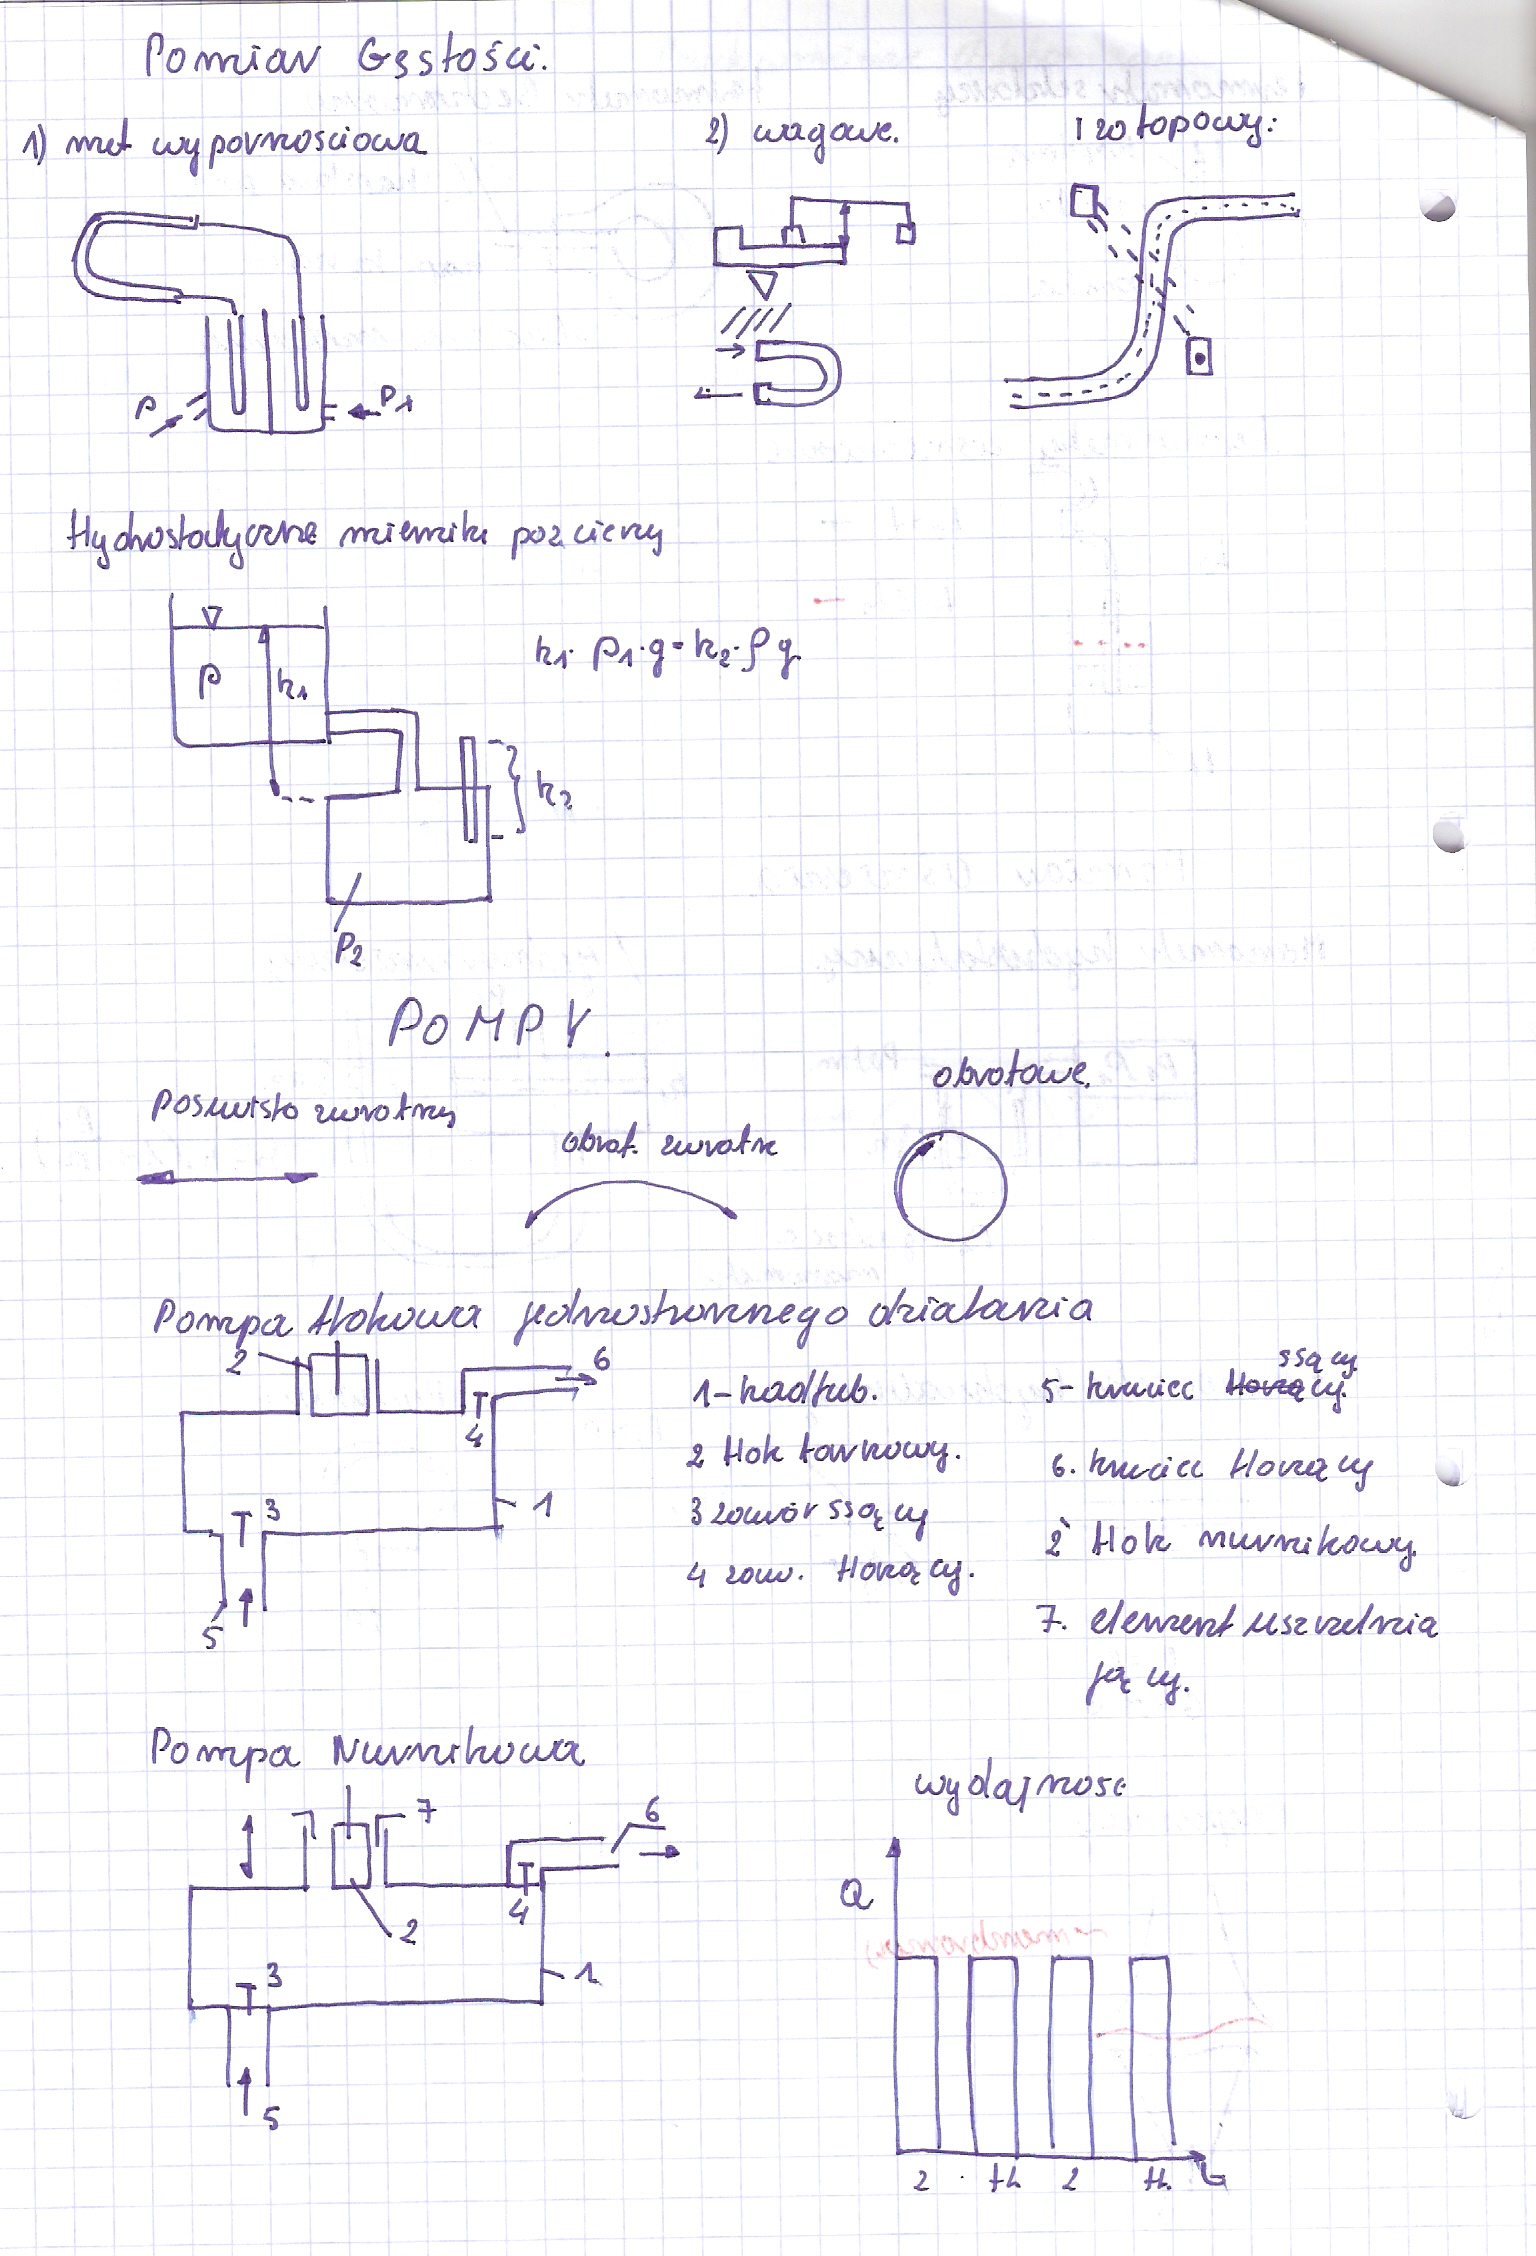 Pomiar Gęstości.
1) met wypornościowa
2) wagowe.
Izotopowy:
ρ
ρ1
Hydrostatyczne mierniki poz cieczy
h1· ρ1·g = h2·ρ g
ρ
h1
h2
ρ2
POMPY.
Posuwisto zwrotny
obrot. zwrotne
obrotowe.
Pompa tłokowa jednostronnego działania
2
6
4
3
1
5
1-kadłub.
2 tłok tarkowy.
3 zawór ssący
4 zaw. tłoczący.
5- króciec tłoczący. ssący.
6. króciec tłoczący
2` tłok nurnikowy.
7. element uszczelnia
jący.
Pompa Nurnikowa
7
6
4
2
3
1
5
wydajność
Q
2 · tł. 2 tł. t